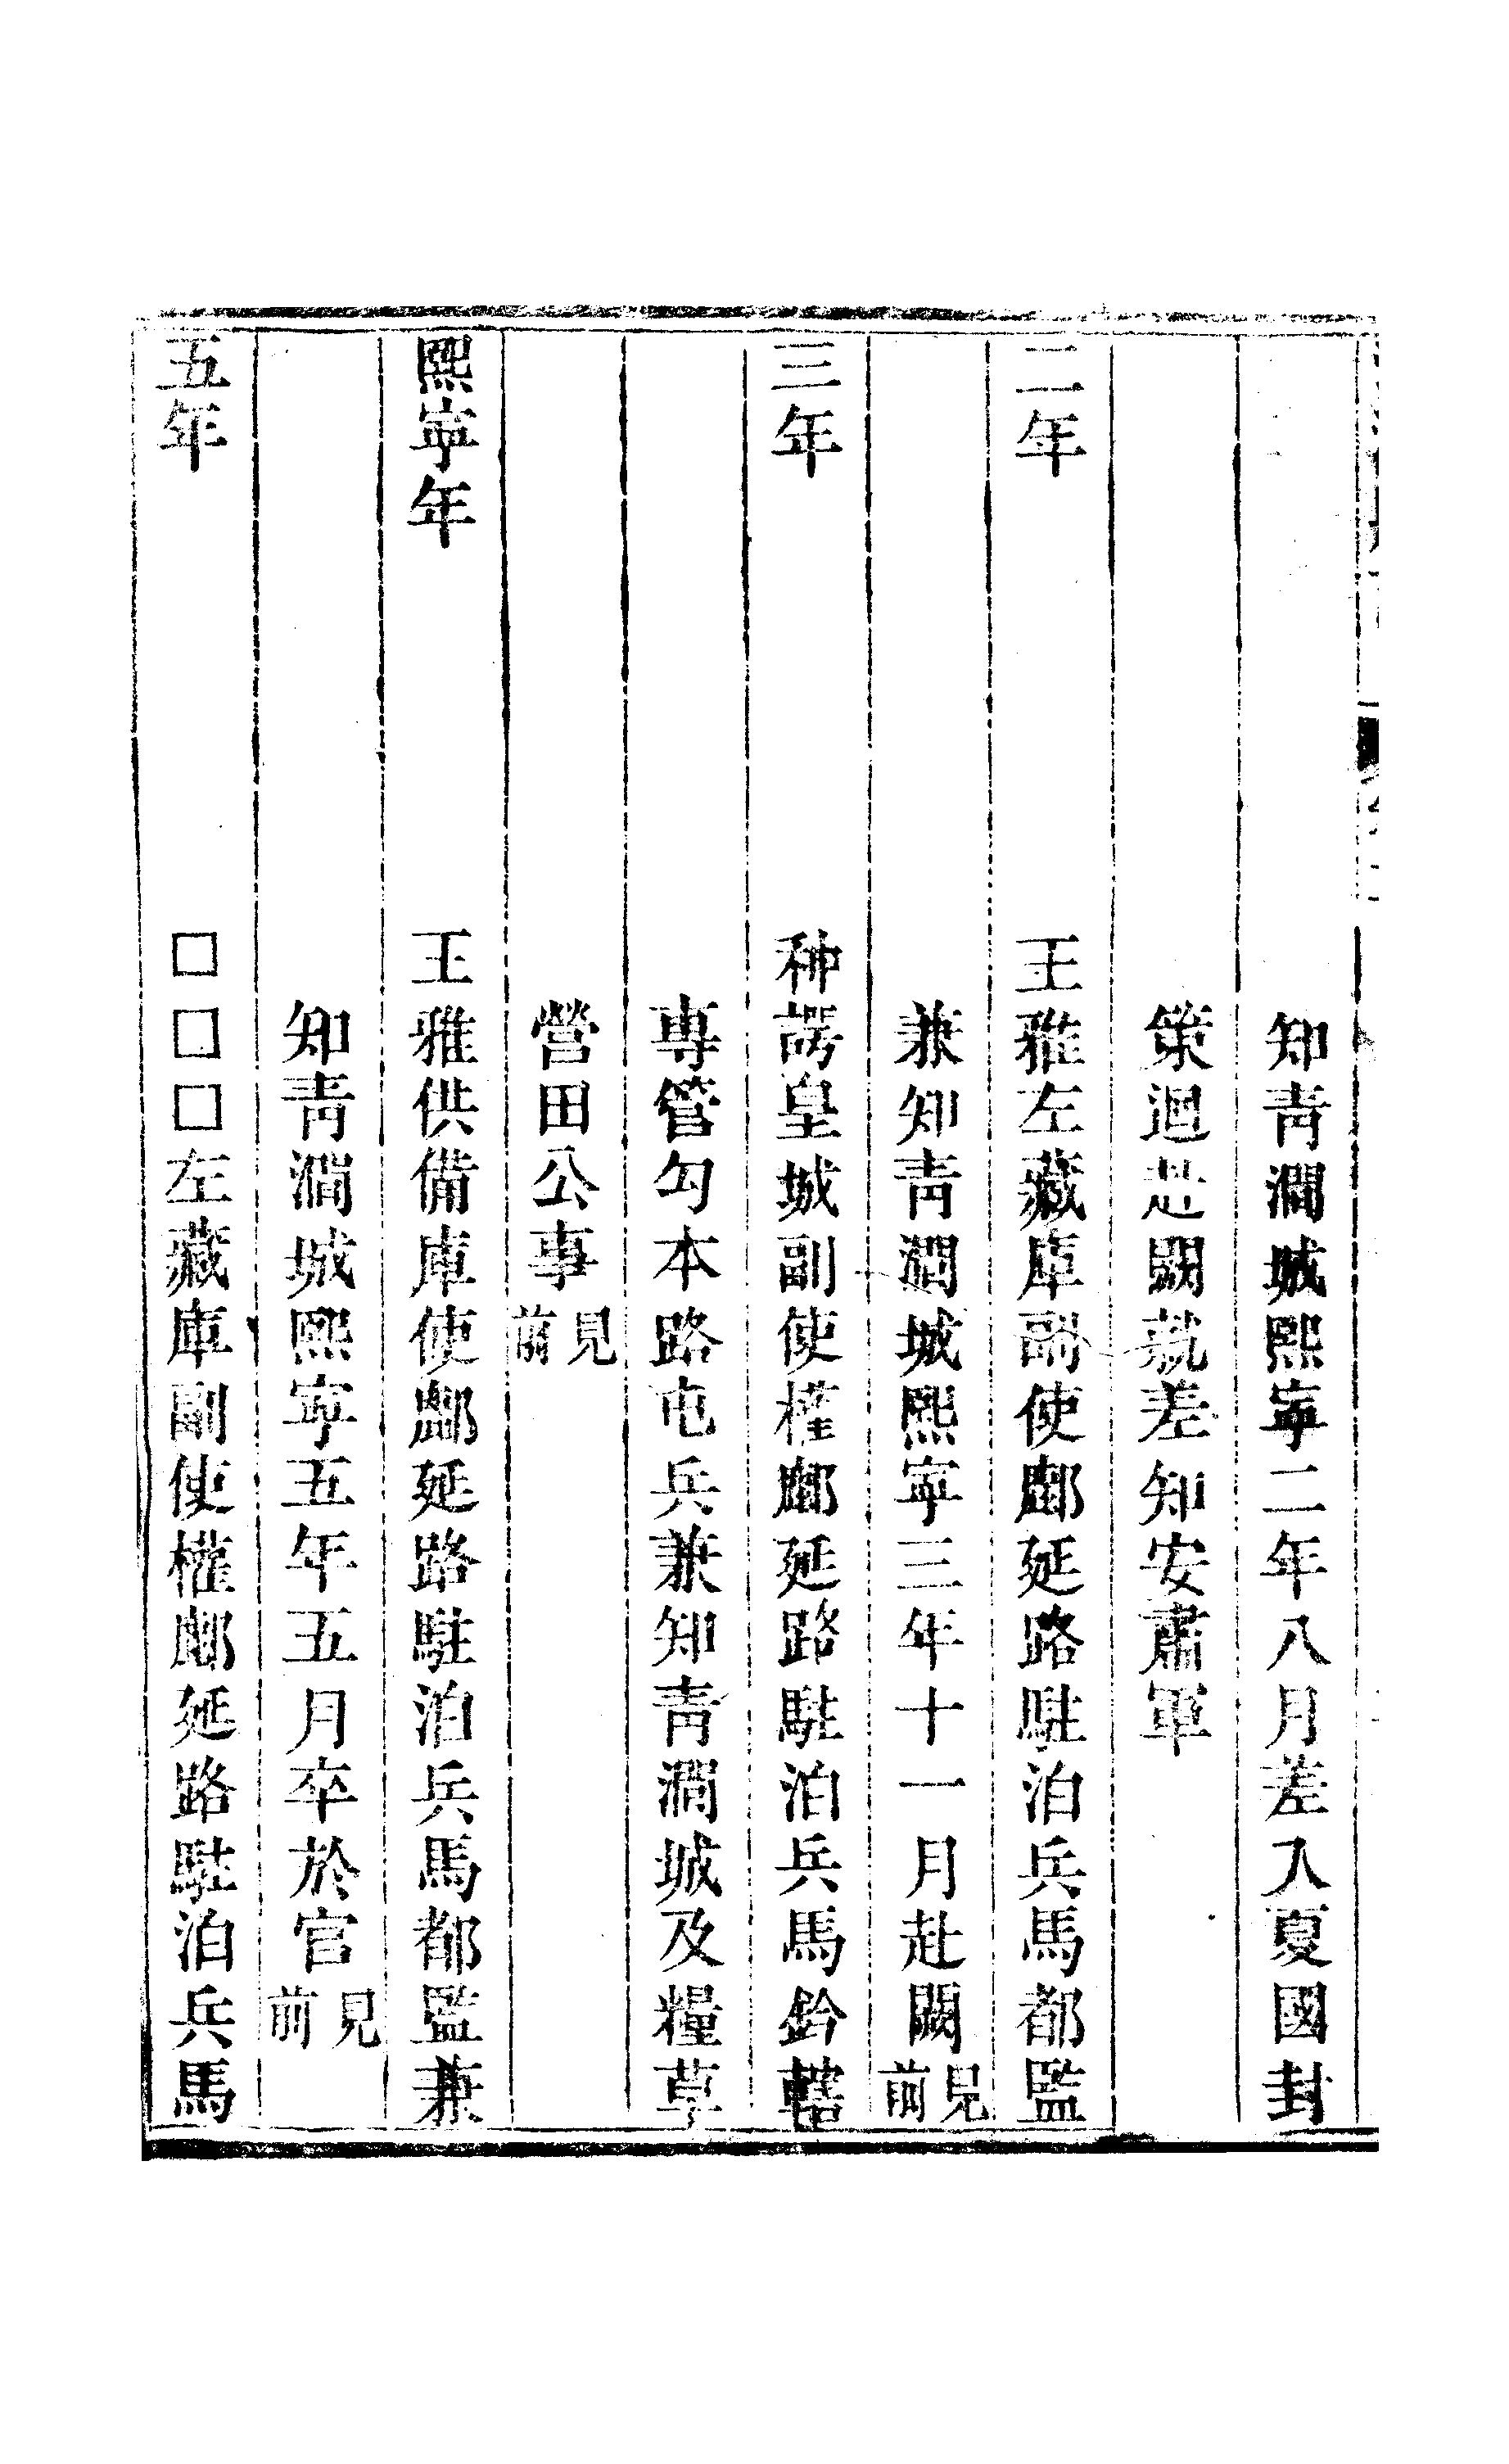 知青澗城熙寧二年八月差入夏國封
策迴赴闕就差知安肅軍
二年 王雅左藏庫副使鄜延路駐泊兵馬都監
兼知青澗城熙寧三年十一月赴闕見前
三年 种諤皇城副使權鄜延路駐泊兵馬鈐轄
專管勾本路屯兵兼知青澗城及糧草
營田公事見前
熙寧年 王雅供備庫使鄜延路駐泊兵馬都監兼
知青澗城熙寧五年五月卒於官見前
五年 □□□左藏庫副使權鄜延路駐泊兵馬